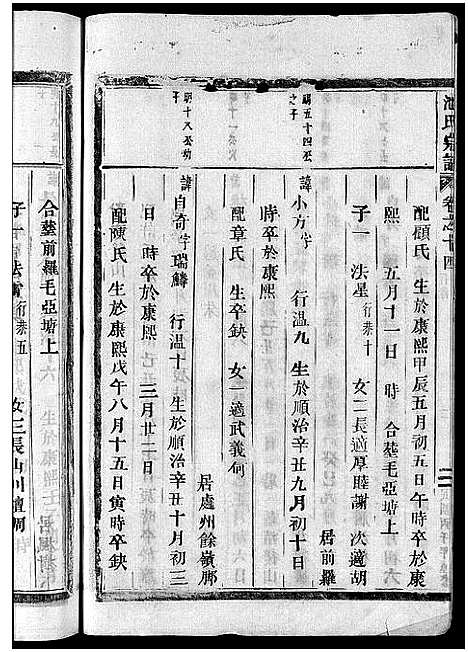 池氏宗譜 卷之十四
配顧氏 生於康熙甲辰五月初五日午時卒於康
熙 五月十一日 時 合葬毛亞塘上
子一 法星行泰十 女二長適厚睦謝 次適胡
居前羅
明五十四公之子
諱小方字 行溫九 生於順治辛丑九月初十日
時卒於康熙
配章氏 生卒缺 女一適武義何
居處州餘嶺鄉
明十八公幼子
諱自奇字瑞麟 行溫十 生於順治辛丑十月初三
日 時卒於康熙 三月廿二日
配陳氏 生於康熙戊午八月十五日寅時卒缺
合葬前羅毛亞塘上
子一 法 行泰五 女三長山川壇胡